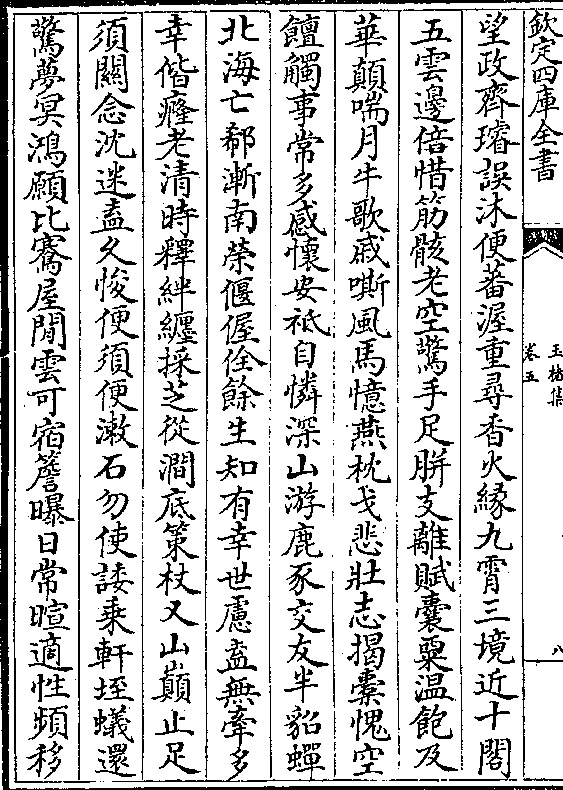 欽定四庫全書
玉楮集
卷五
八
望政齊璿誤沐便蕃渥重尋香火緣九霄三境近十閣
五雲邊倍惜筋骸老空驚手足胼支離賦囊粟温飽及
華顛喘月牛歌戚嘶風馬憶燕枕戈悲壯志揭橐愧空
饘觸事常多感懷安祗自憐深山游鹿豕交友半貂蟬
北海亡郗漸南榮偃偓佺餘生知有幸世慮盍無牽多
幸偕癃老清時釋絆纏採芝從澗底策杖又山巔止足
須關念沈迷盍乆悛便須便漱石勿使諉乗軒垤蟻還
驚夢冥鴻願比騫屋閒雲可宿簷曝日常暄適性頻移